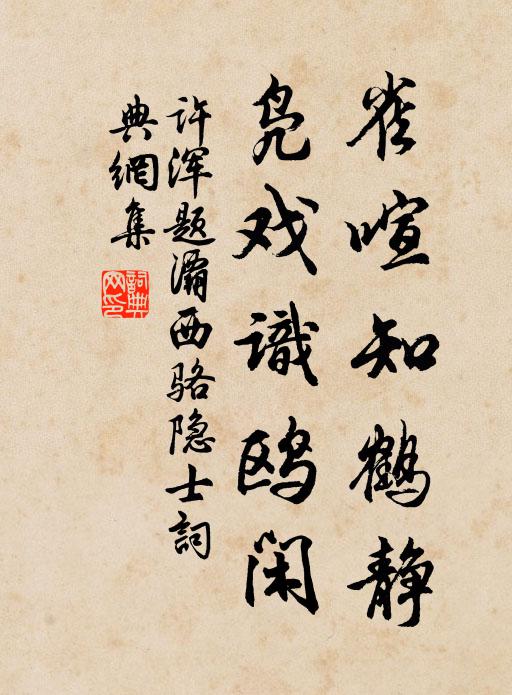 雀喧知鹤静
凫戏識鸥闲
许浑题灞西骆隐士詞
典網集
詞典网印